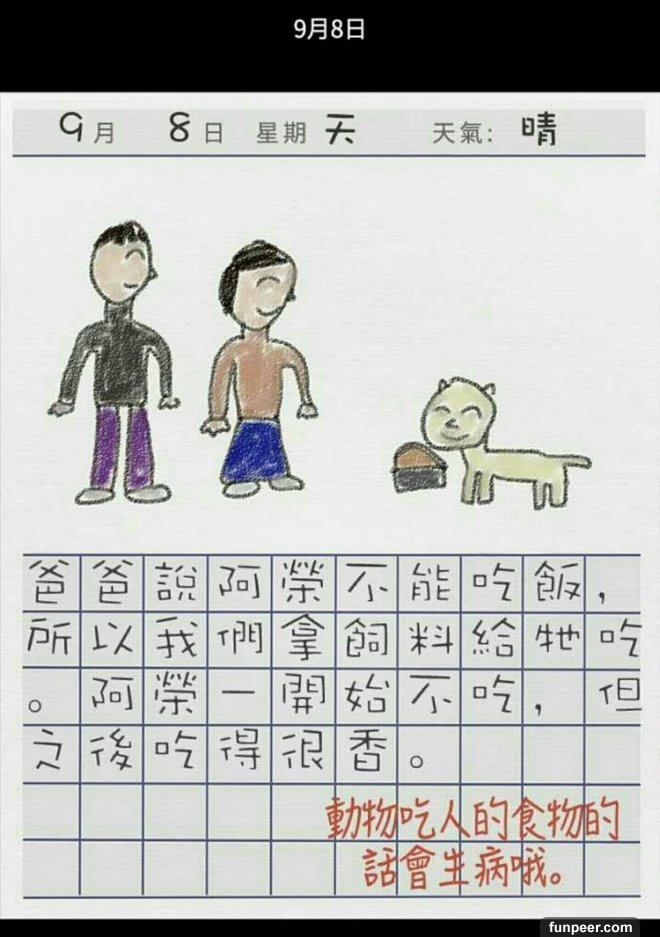 9月8日
9月 8日 星期 天 天氣: 晴
爸爸說阿榮不能吃飯，
所以我們拿飼料給牠吃
。阿榮一開始不吃，但
之後吃得很香。
動物吃人的食物的
話會生病哦。
funpeer.com